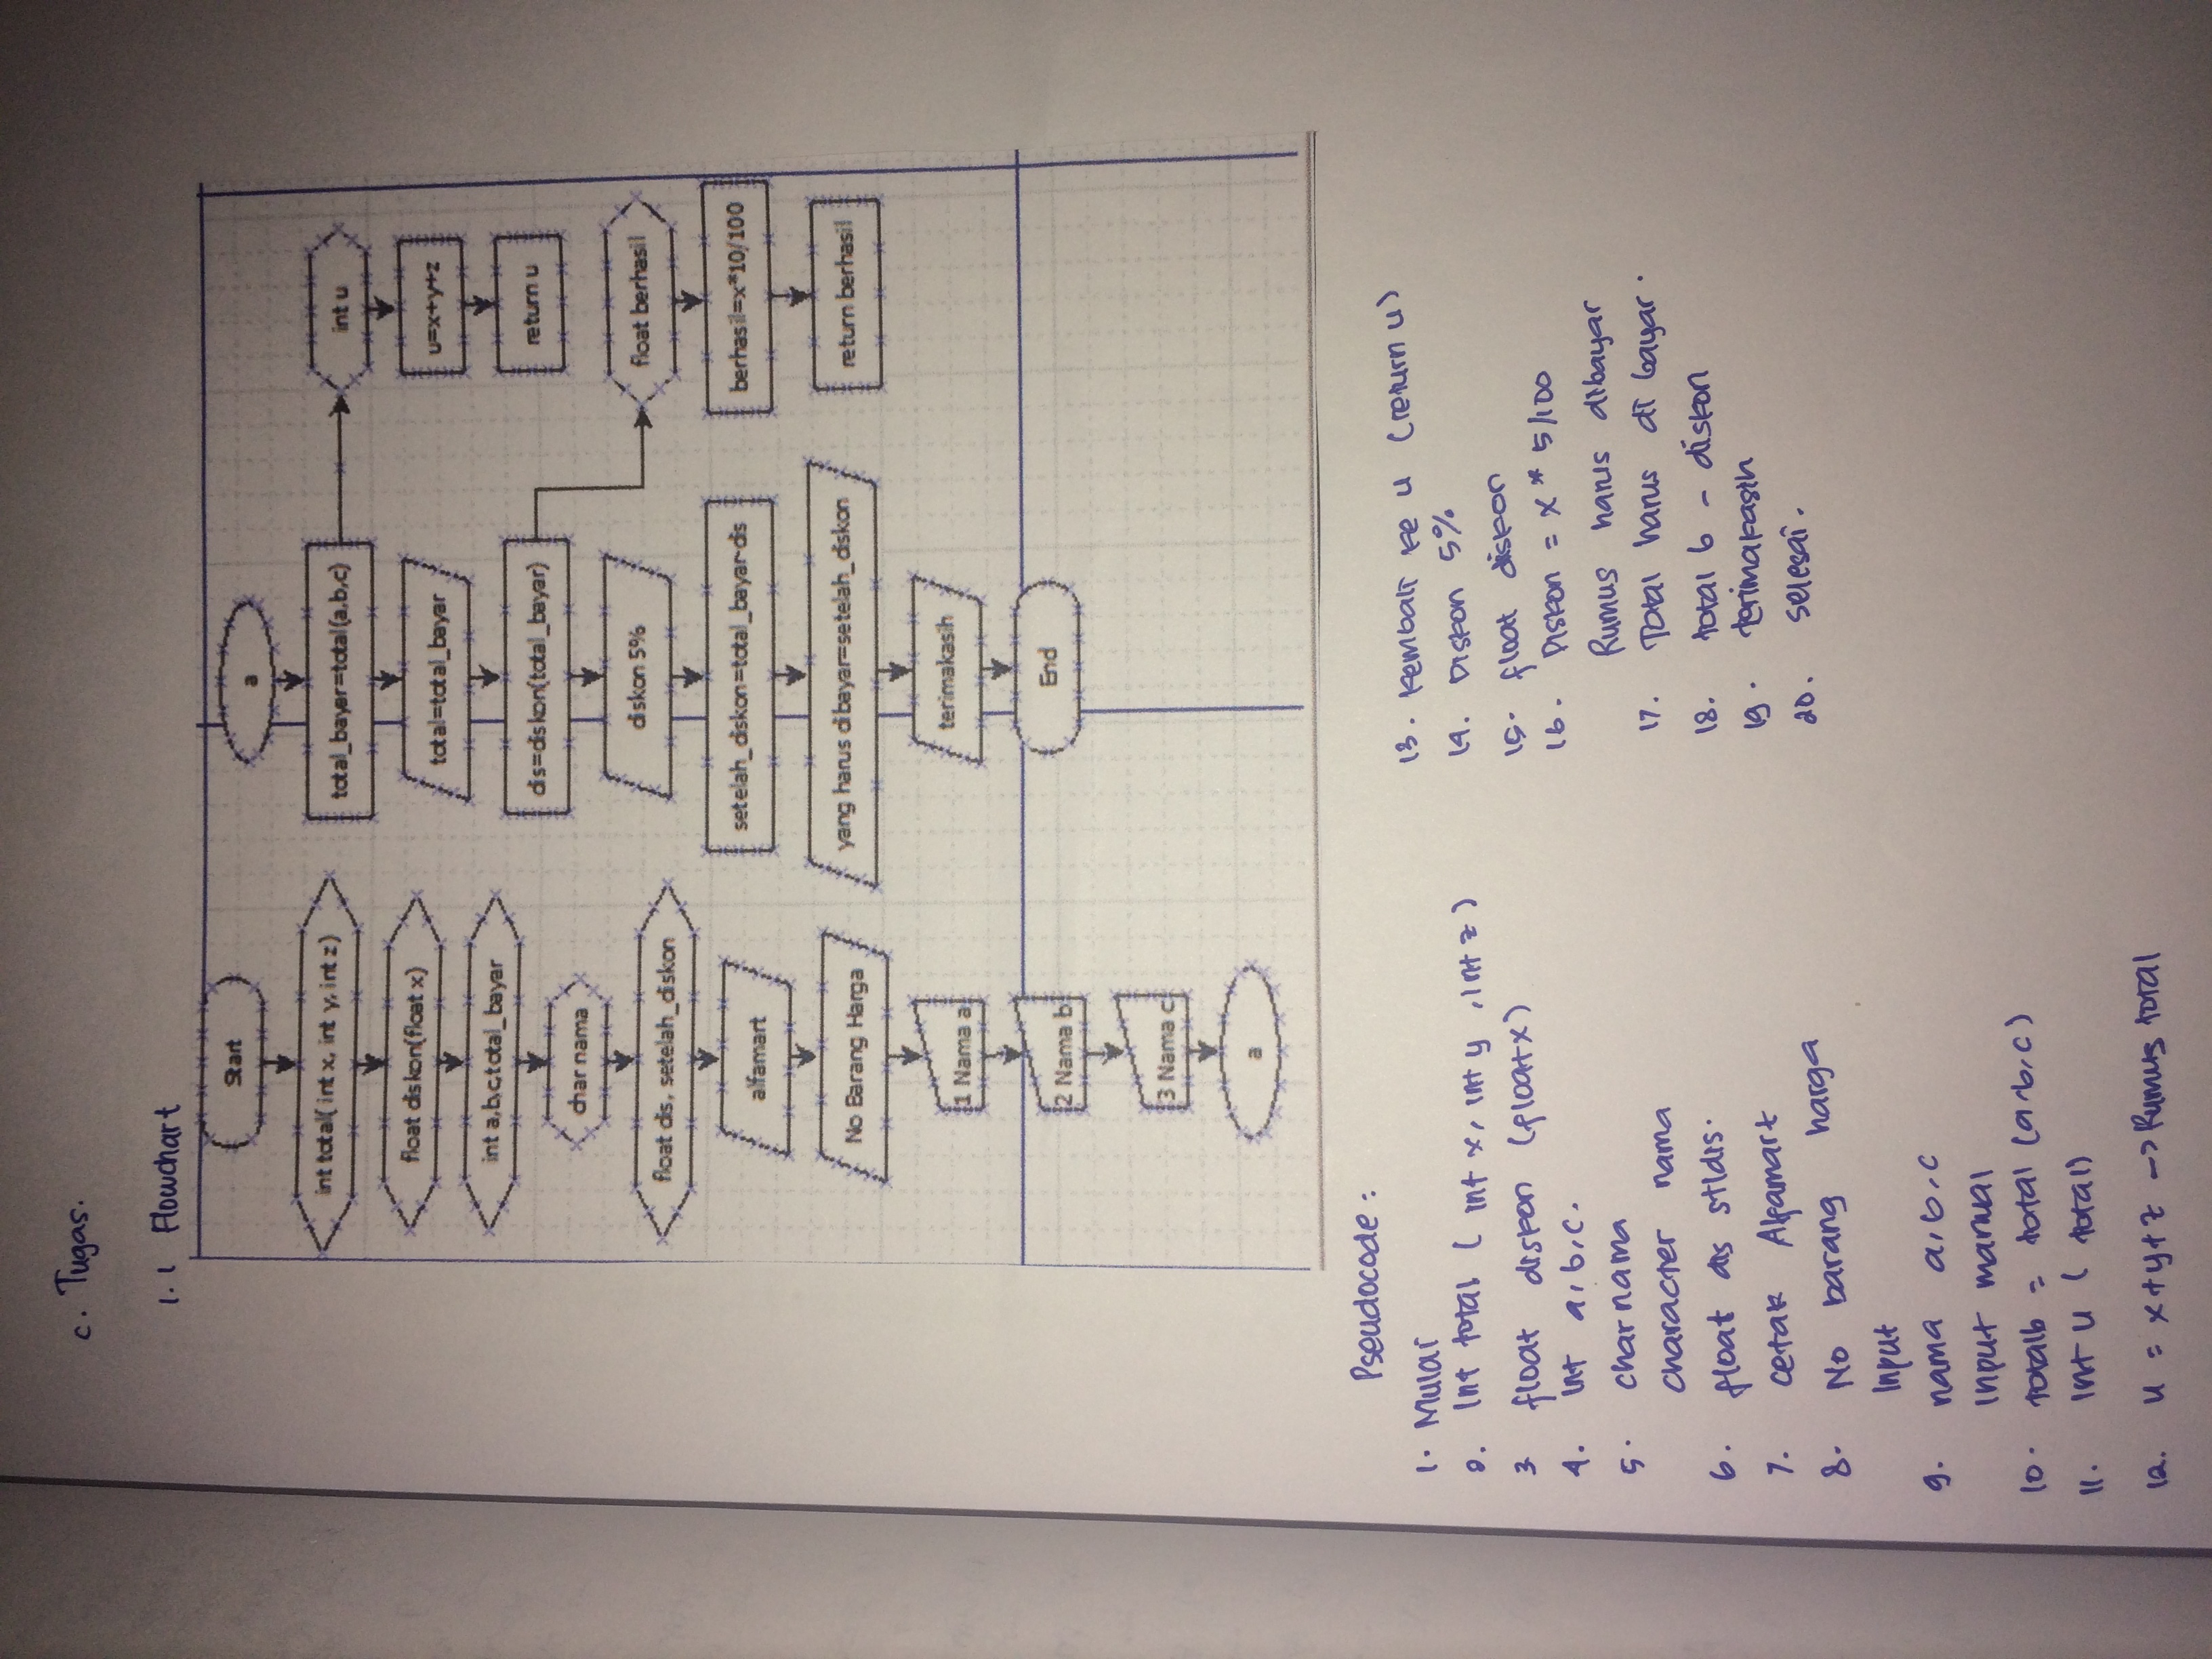 c. Tugas.
1.1 Flowchart
Start
int total( int x, int y, int z)
float diskon(float x)
int a,b,c,total_bayar
char nama
float dis, setelah_diskon
alfamart
No Barang Harga
1 Nama a
2 Nama b
3 Nama c
a
a
total_bayar=total(a,b,c)
total=total_bayar
dis=diskon(total_bayar)
diskon 5%
setelah_diskon=total_bayar-dis
yang harus dibayar=setelah_diskon
terimakasih
End
int u
u=x+y+z
return u
float berhasil
berhasil=x*10/100
return berhasil
Pseudocode :
1. Mulai
2. Int total ( int x, int y, int z)
3 float diskon (float x)
4. Int a, b, c.
5. char nama
character nama
6. float dis stldis.
7. cetak Alfamart
8. No barang harga
Input
9. nama a, b, c
Input manual
10. totalb = total (a, b, c)
11. Int u ( total)
12. u = x + y + z -> Rumus total
13. Kembali ke u (return u)
14. Diskon 5%
15. float diskon
16. Diskon = x * 5/100
Rumus harus dibayar
17. Total harus di bayar.
18. total b - diskon
19. terimakasih
20. selesai.